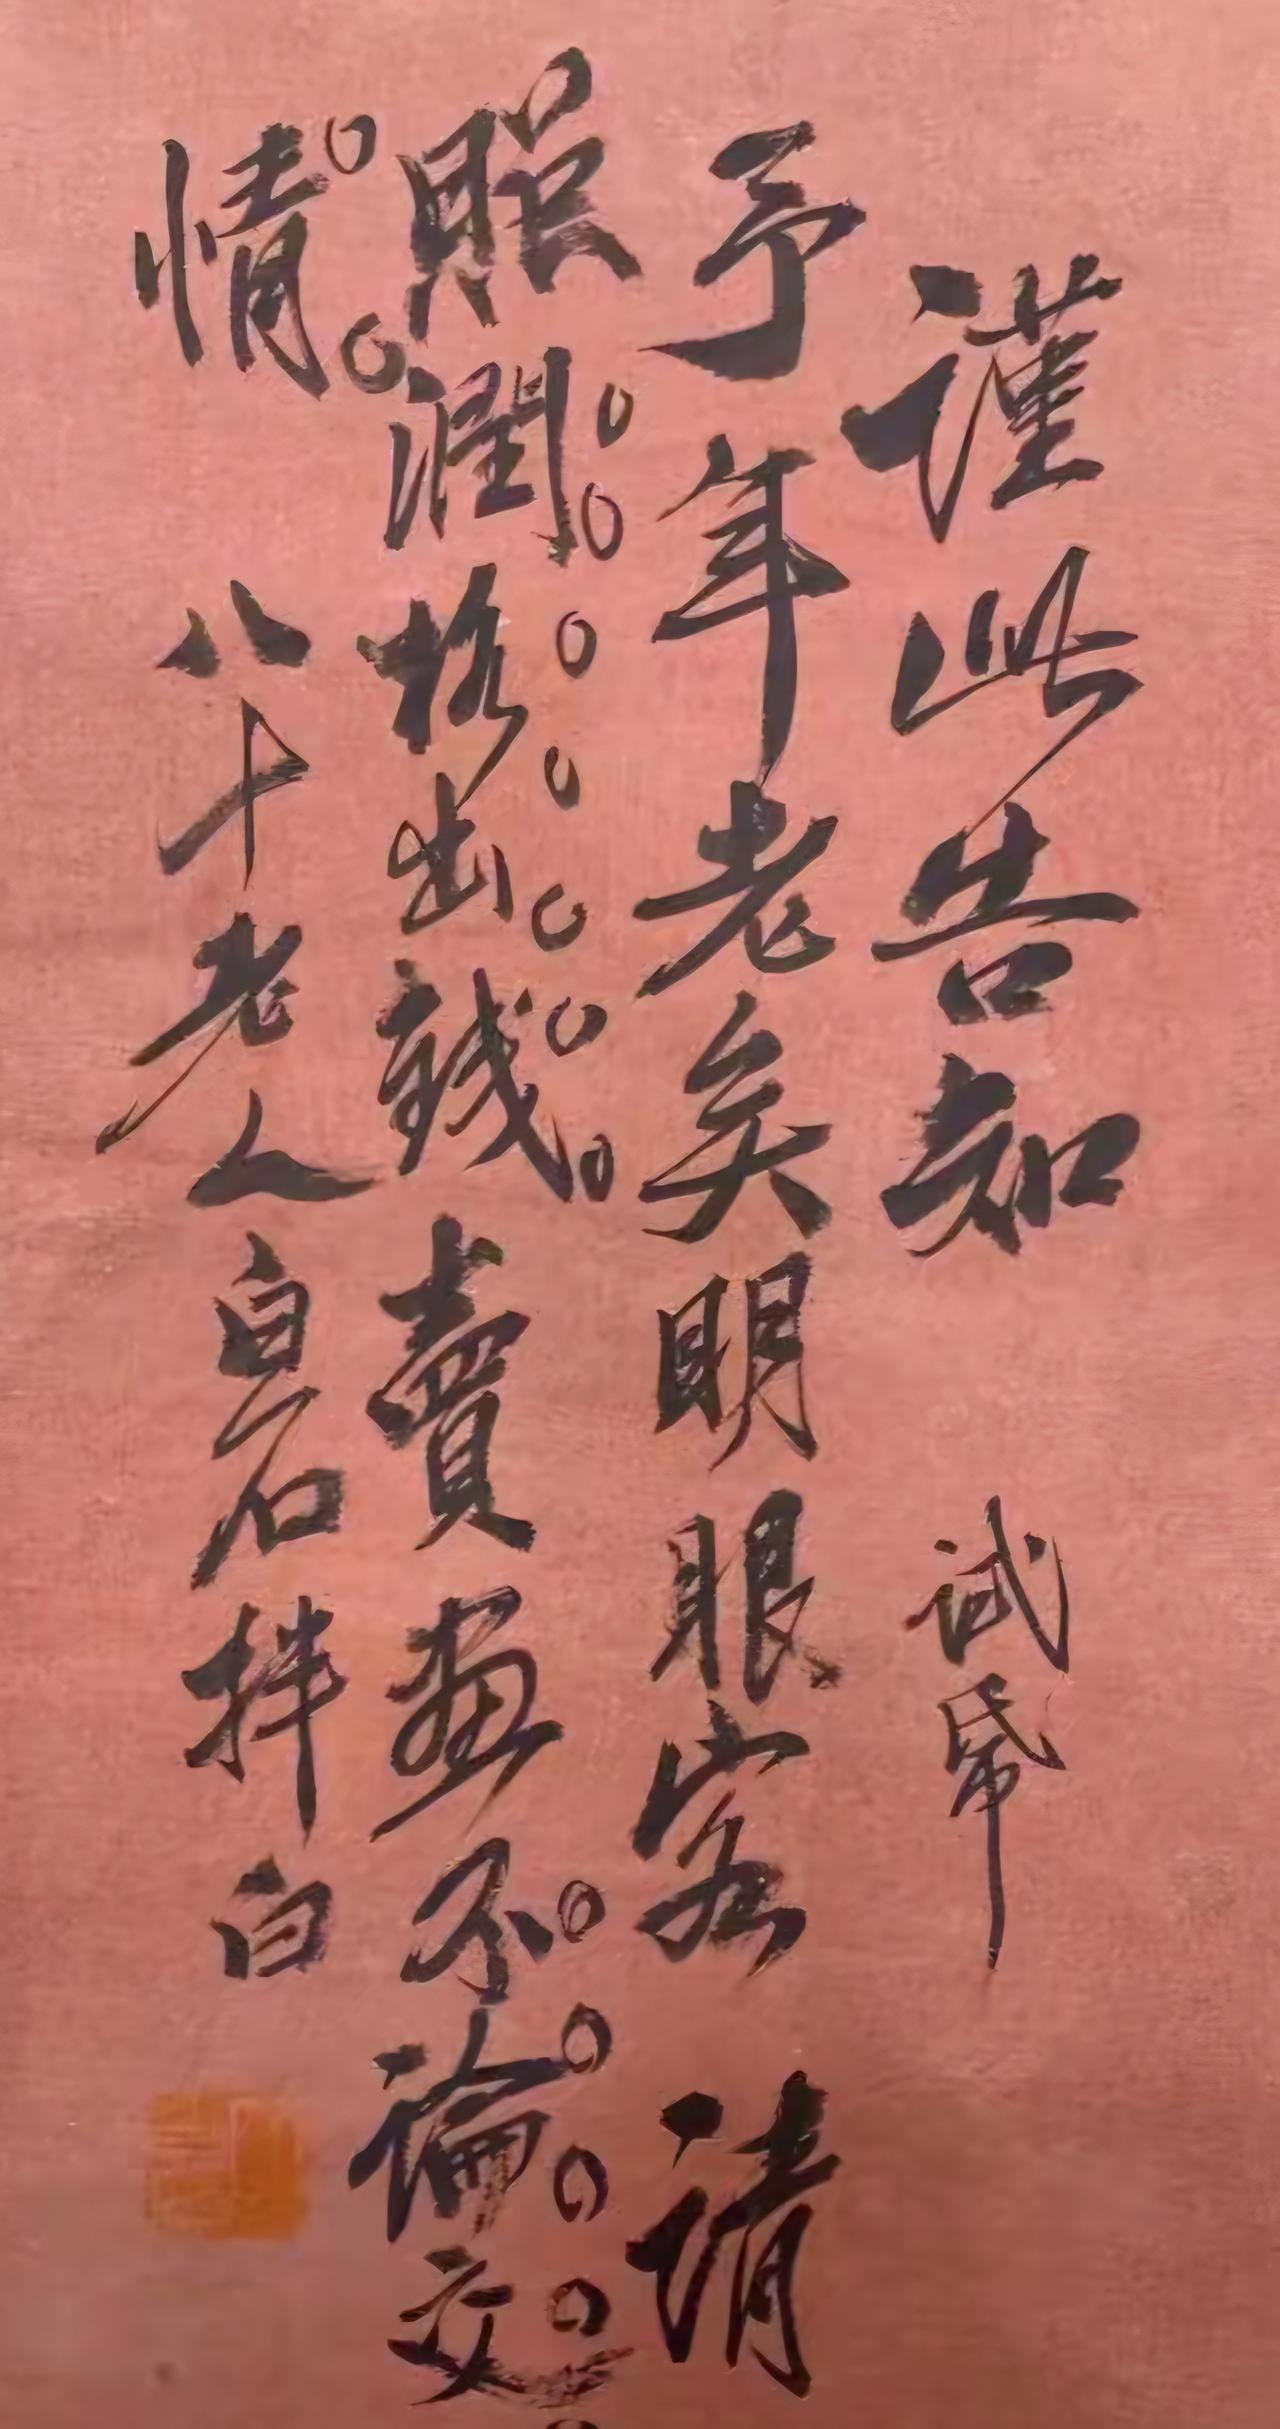 謹此告知 試帋
予年老矣明眼客請
照潤格出錢賣畫不論交
情
八十老人白石拌白